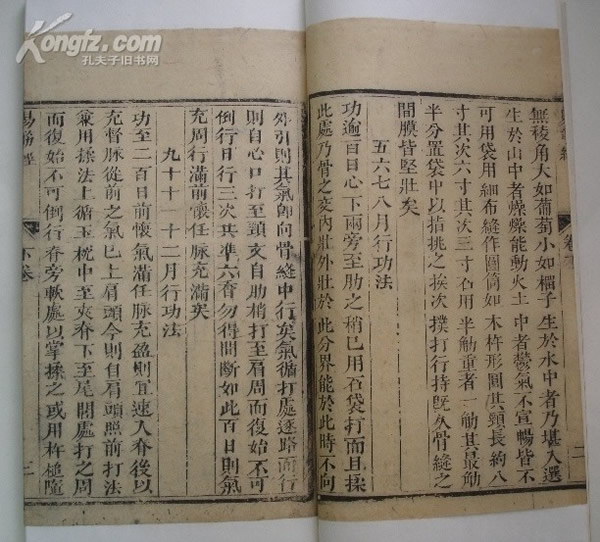 Kongfz.com
孔夫子旧书网
無稜角大如葡萄小如榴子生於水中者乃堪入選
生於山中者燥燥能動火土中者鬱氣不宣暢皆不
可用袋用細布縫作圓筒如木杵形圓其頭長約八
寸其次六寸其次三寸石用半觔重者一觔其最觔
半分置袋中以指挑之挨次撲打行持旣久骨縫之
間膜皆堅壯矣
五六七八月行功法
功逾百日心下兩旁至肋之稍已用石袋打而且揉
此處乃骨之交內壯外壯於此分界能於此時不向
卷
二
外引則其氣卽向骨縫中行矣氣循打處逐路而行
則自心口打至頸又自肋梢打至肩周而復始不可
倒行日行三次共準六香勿得間斷如此百日則氣
充周行滿前懷任脉充滿矣
九十十一十二月行功法
功至二百日前懷氣滿任脉充盈則宜速入脊後以
充督脉從前之氣已上肩頭今則自肩頭照前打法
兼用揉法上循玉枕中至夾脊下至尾閭處打之周
而復始不可倒行脊旁軟處以掌揉之或用杵槌隨
易筋經
下卷
三